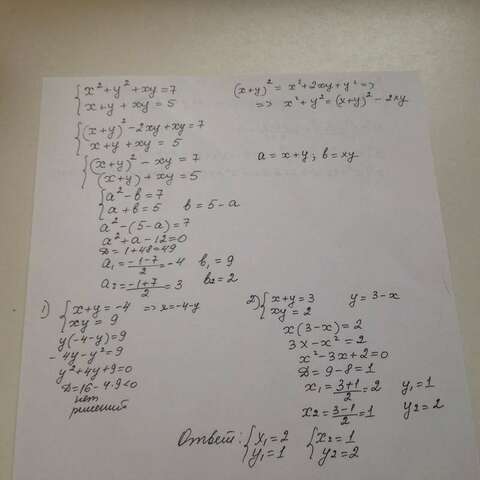 {x²+y²+xy=7
{x+y+xy=5
(x+y)²=x²+2xy+y²=>
=> x²+y²=(x+y)²-2xy
{(x+y)²-2xy+xy=7
{x+y+xy=5
{(x+y)²-xy=7
{(x+y)+xy=5
a=x+y; b=xy
{a²-b=7
{a+b=5 b=5-a
a²-(5-a)=7
a²+a-12=0
D=1+48=49
a₁=(-1-7)/2=-4 b₁=9
a₂=(-1+7)/2=3 b₂=2
1) {x+y=-4 => x=-4-y
{xy=9
y(-4-y)=9
-4y-y²=9
y²+4y+9=0
D=16-4·9<0
нет
решений
2) {x+y=3 y=3-x
{xy=2
x(3-x)=2
3x-x²=2
x²-3x+2=0
D=9-8=1
x₁=(3+1)/2=2 y₁=1
x₂=(3-1)/2=1 y₂=2
Ответ: {x₁=2 {x₂=1
{y₁=1 {y₂=2